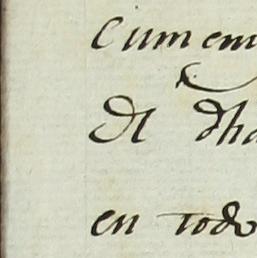 Cumem
El dha
en todo